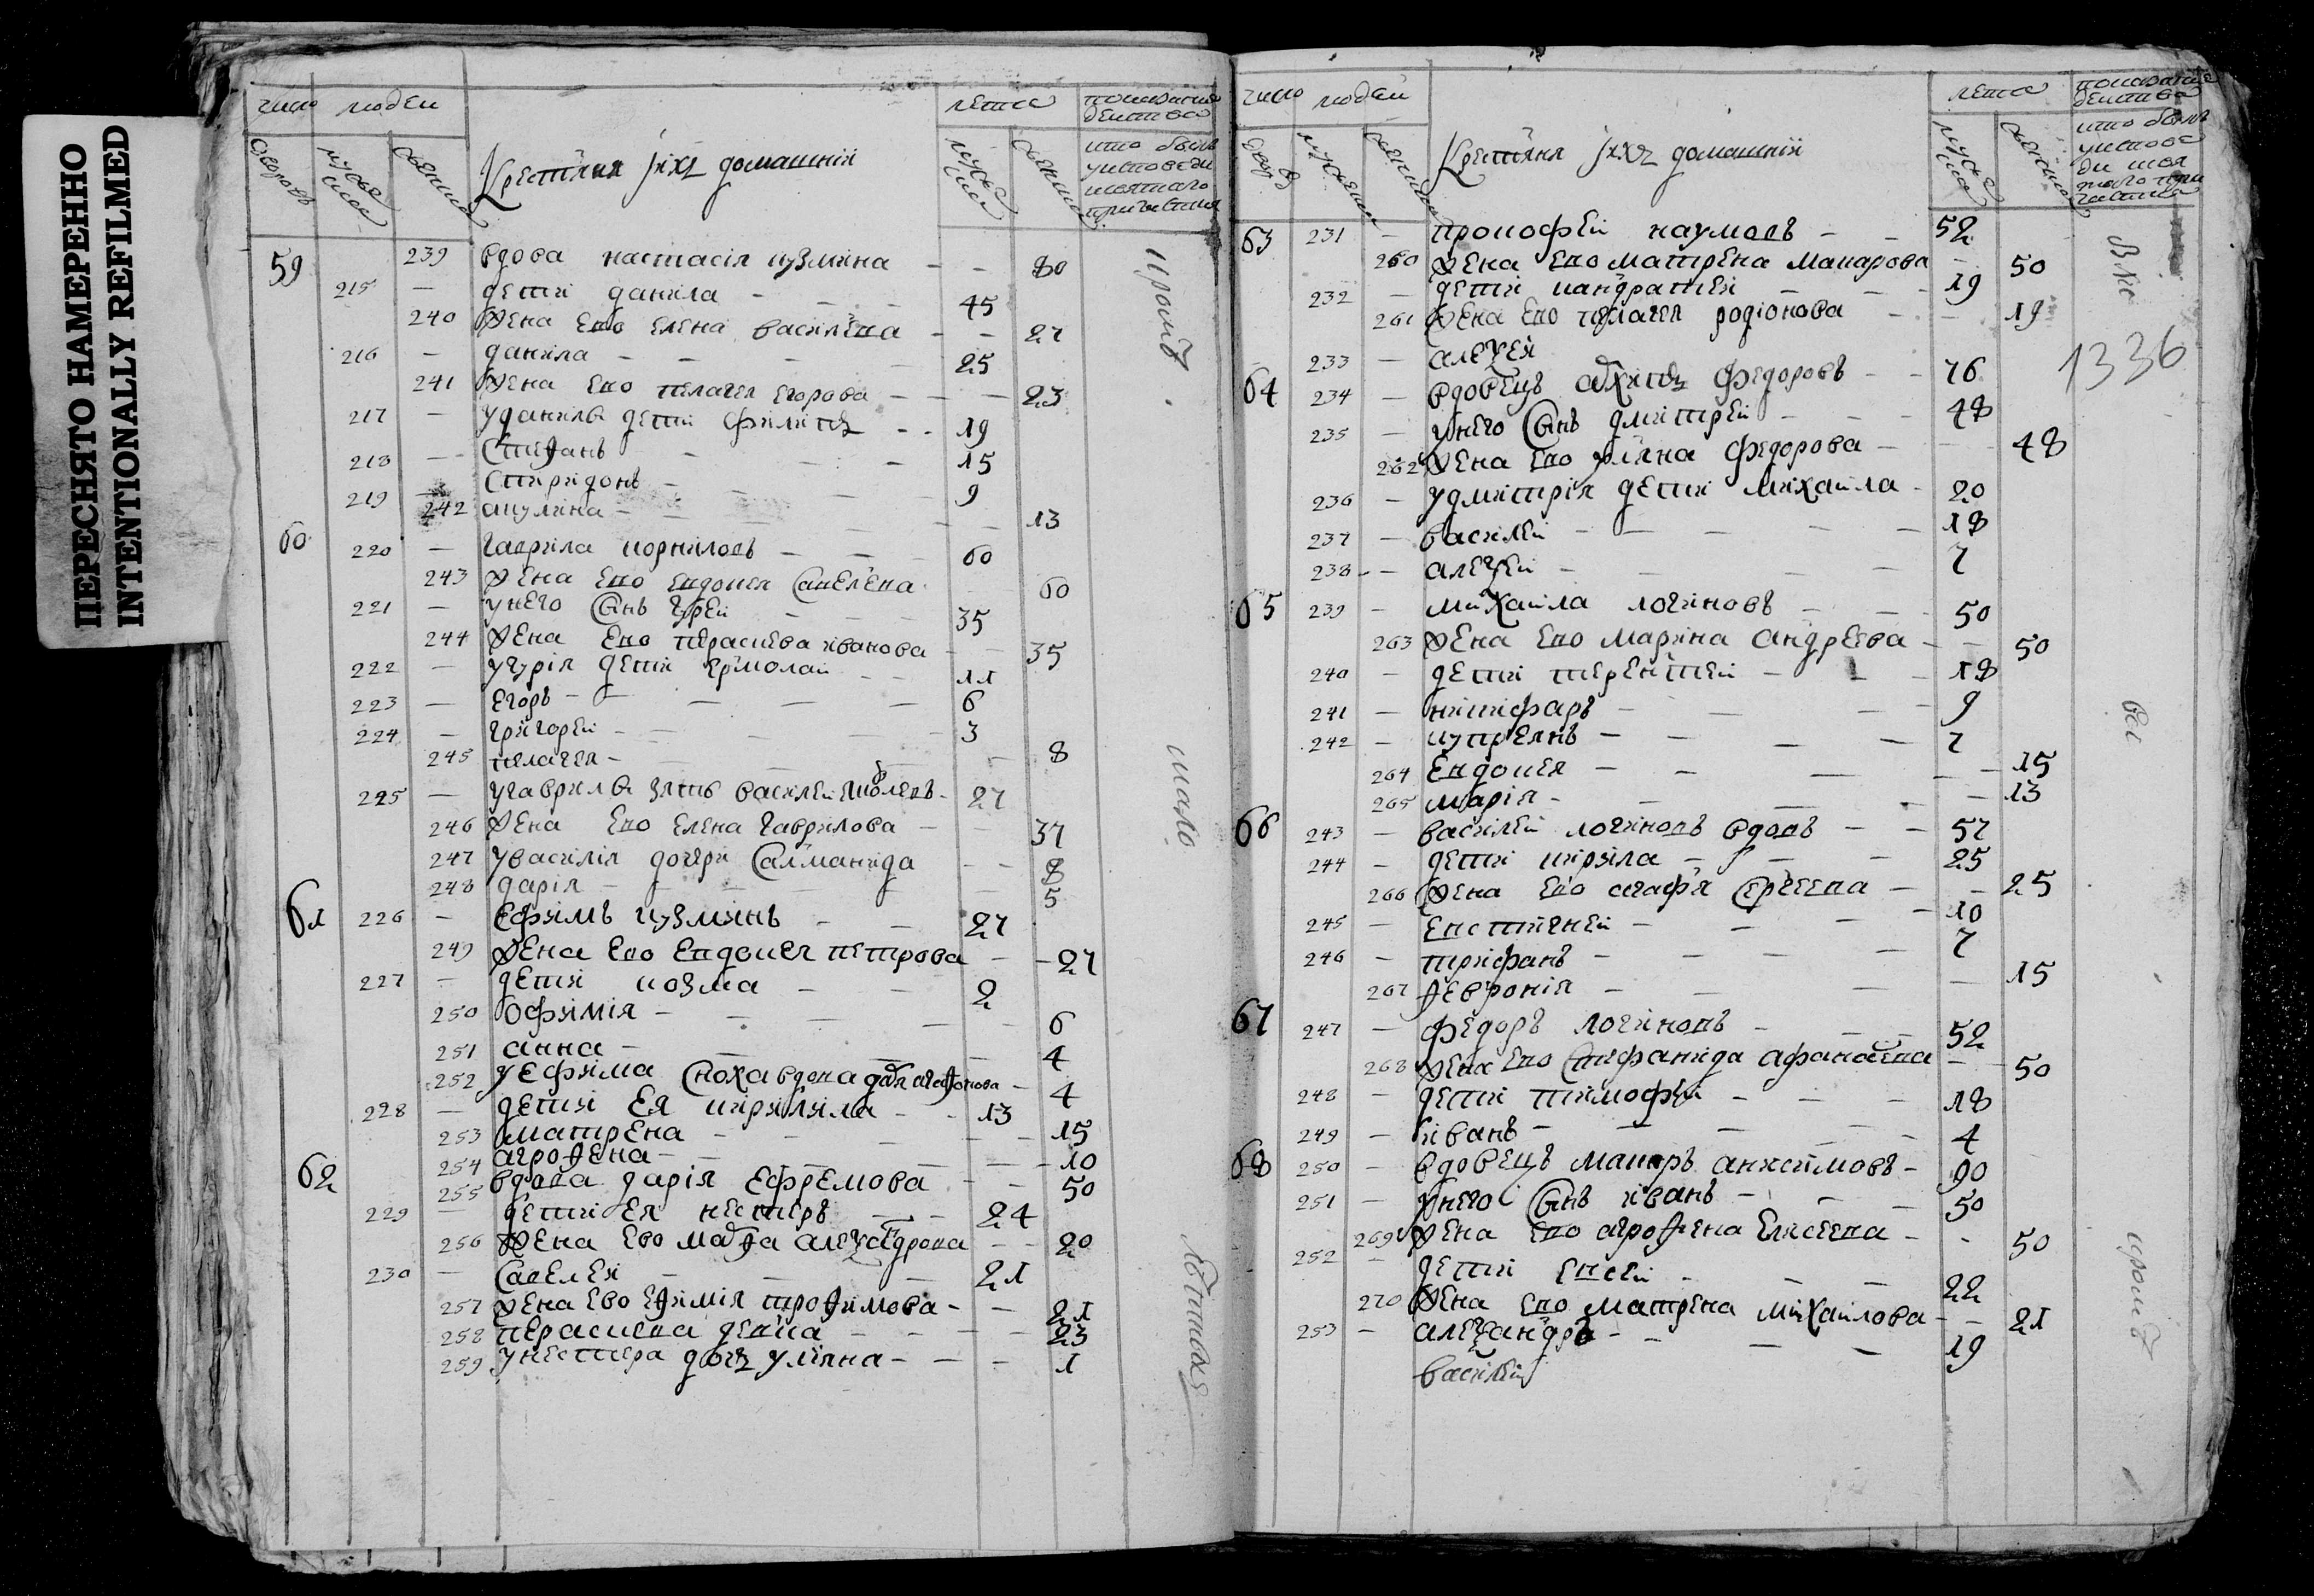 ПЕРЕСНЯТО НАМЕРЕННО
INTENTIONALLY REFILMED
число людеи лета показание действа
дворовъ мужеска женска Крестьяня и ихъ домашнiи мужеска женска кто былъ у исповеди и святаго причастия
59 239 вдова настасiя кузмина — — 80
215 — дети данила — — 45
240 жена ево елена василева — — 27
216 — данила — — 25
241 жена ево пелагея егорова — — 23
217 — у данилы дети филипъ — — 19
218 — стефанъ — — 15
219 — спиридонъ — — 9
242 акулина — — 13
60 220 — гаврила корниловъ — — 60
243 жена ево евдокея савелева 60
221 — у него сынъ гурей — — 35
244 жена ево парасковa иванова — 35
222 — у гурiя дети ермолаи — — 11
223 — егоръ — — 6
224 — григореи — — 3
245 пелагея — — 8
225 — у гаврилы зять василеи — 27
246 жена ево елена гаврилова — — 37
247 у василiя дочери саламанида — — 8
248 дарiя — — 5
61 226 — ефимъ кузминъ — — 27
249 жена ево евдокея петрова — — 27
227 — дети козма — — 2
250 офимiя — — 6
251 анна — — 4
252 у ефима сноха вдова агафонова — 4
228 — дети ея кирилила — — 13
253 матрена — — 15
254 агрофена — — 10
62 255 вдова дарiя ефремова — — 50
229 — дети ея нестеръ — — 24
256 жена ево марфа александрова — — 20
230 — савелеи — — 21
257 жена ево ефимiя трофимова — — 21
258 парасковa девка — — 23
259 у нестера дочь улияна — — 1
число людеи лета показание действа
дворовъ мужеска женска Крестьяня и ихъ домашнiи мужеска женска кто былъ у исповеди и святаго причастия
1336
63 231 — прокофеи наумовъ — — 52
260 жена ево матрена макарова — 50
232 — дети кандратеи — — 19
261 жена ево пелагея родiонова — — 19
233 — алексеи
64 234 — вдовецъ архипъ федоровъ — — 76
235 — у него сынъ дмитреи — — 48
262 жена ево улияна федорова — — 48
236 — у дмитрiя дети михаила — 20
237 — василеи — — 18
238 — алексеи — — 7
65 239 — михаила логиновъ — — 50
263 жена ево марина андреева — — 50
240 — дети терентеи — — 18
241 — никифаръ — — 9
242 — куприянъ — — 7
264 евдокея — — 15
265 марiя — — 13
66 243 — василеи логиновъ вдовъ — — 57
244 — дети кирила — — 25
266 жена ево агафя сергеева — — 25
245 — евстигнеи — — 10
246 — трифанъ — — 7
267 февронiя — — 15
67 247 — федоръ логиновъ — — 52
268 жена ево стефанида афанасева — — 50
248 — дети тимофеи — — 18
249 — иванъ — — 4
68 250 — вдовецъ макаръ анисимовъ — 90
251 — у него сынъ иванъ — — 50
269 жена ево агрофена елисеева — — 50
252 — дети евсеи — — 22
270 жена ево матрена михаилова — — 21
253 — александръ — — 19
василеи